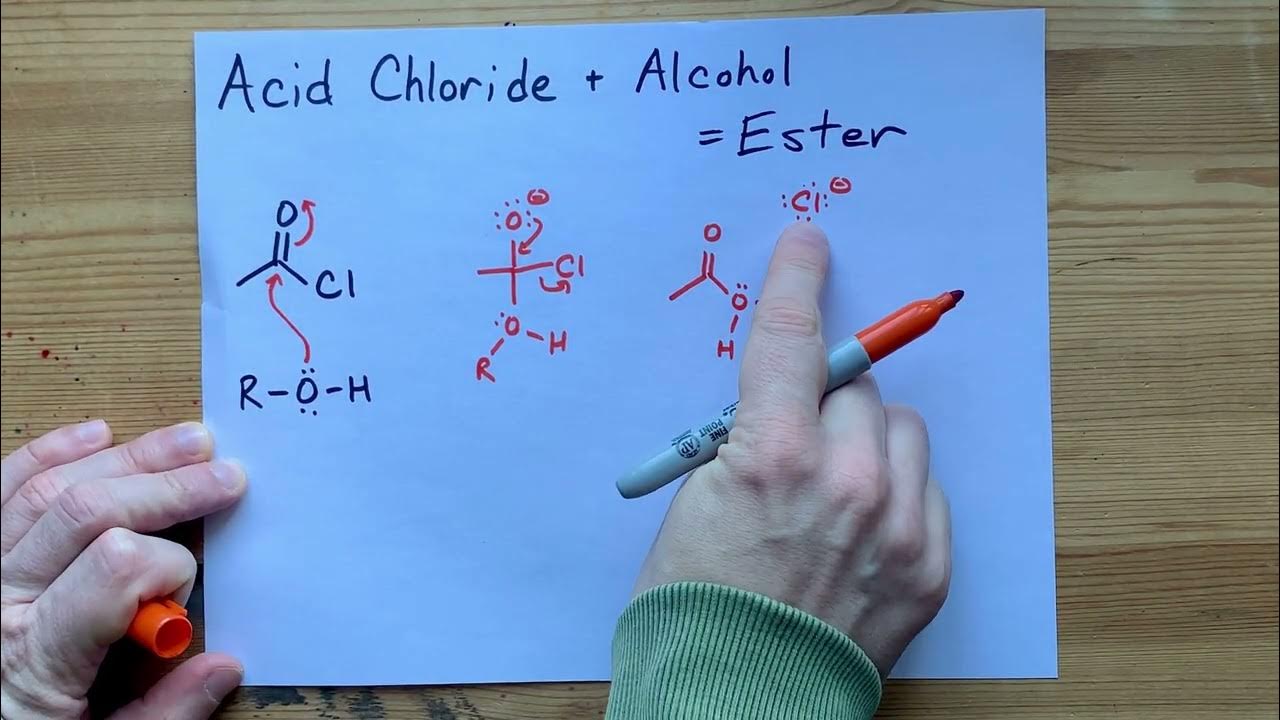 Acid Chloride + Alcohol
= Ester
:Cl: ⊖
O ⊖
O
O
Cl
Cl
O
O
H
R
H
R-O-H
FINE
POINT
AP